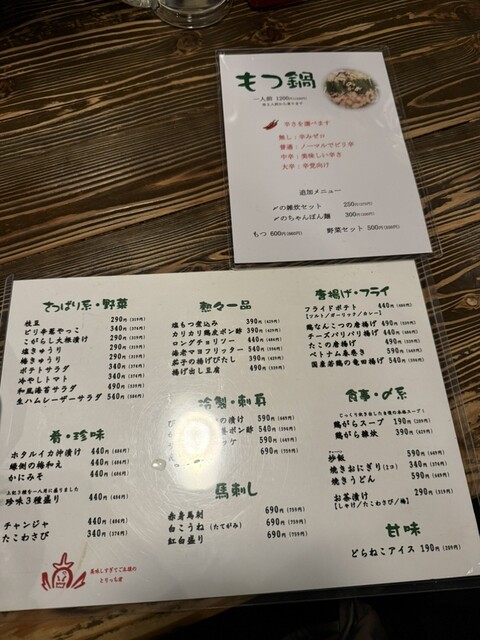 もつ鍋
一人前 1200円
辛さを選べます
無し：辛みゼロ
普通：ノーマルでピリ辛
中辛：美味しい辛さ
大辛：辛党向け
追加メニュー
〆の雑炊セット 250円(275円)
〆のちゃんぽん麺 300円(330円)
もつ 600円(660円) 野菜セット 500円(550円)
さっぱり系・野菜
枝豆 290円(319円)
ピリ辛葱やっこ 340円(374円)
こがらし大根漬け 290円(319円)
塩きゅうり 290円(319円)
梅きゅうり 290円(319円)
ポテトサラダ 340円(374円)
冷やしトマト 340円(374円)
和風海苔サラダ 490円(539円)
生ハムレーザーサラダ 540円(594円)
肴・珍味
ホタルイカ沖漬け 440円(484円)
縁側の梅和え 440円(484円)
かにみそ 440円(484円)
上記3種を一人用に盛りました
珍味3種盛り 440円(484円)
チャンジャ 440円(484円)
たこわさび 340円(374円)
美味しすぎてご主人様の
とりっち君
熱々一品
塩もつ煮込み 390円(429円)
カリカリ鶏皮ポン酢 390円(429円)
ロングチョリソー 440円(484円)
海老マヨフリッター 540円(594円)
茄子の揚げびたし 390円(429円)
揚げ出し豆腐 490円(539円)
冷製・刺身
の漬け 590円(649円)
ポン酢 540円(594円)
ッケ 590円(649円)
690円(759円)
馬刺し
赤身馬刺 690円(759円)
白こうね(たてがみ) 690円(759円)
紅白盛り 690円(759円)
唐揚げ・フライ
フライドポテト 440円(484円)
[ソルト/ガーリック/カレー]
鶏なんこつの唐揚げ 490円(539円)
チーズパリパリ揚げ 440円(484円)
たこの唐揚げ 490円(539円)
ベトナム春巻き 590円(649円)
国産若鶏の竜田揚げ 540円(594円)
食事・〆系
じっくり炊き出した自慢の本格スープ！
鶏がらスープ 190円(209円)
鶏がら雑炊 390円(429円)
炒飯 590円(649円)
焼きおにぎり(2コ) 340円(374円)
焼きうどん 590円(649円)
お茶漬け 290円(319円)
[しゃけ/たこわさび/梅]
甘味
どらねこアイス 190円(209円)